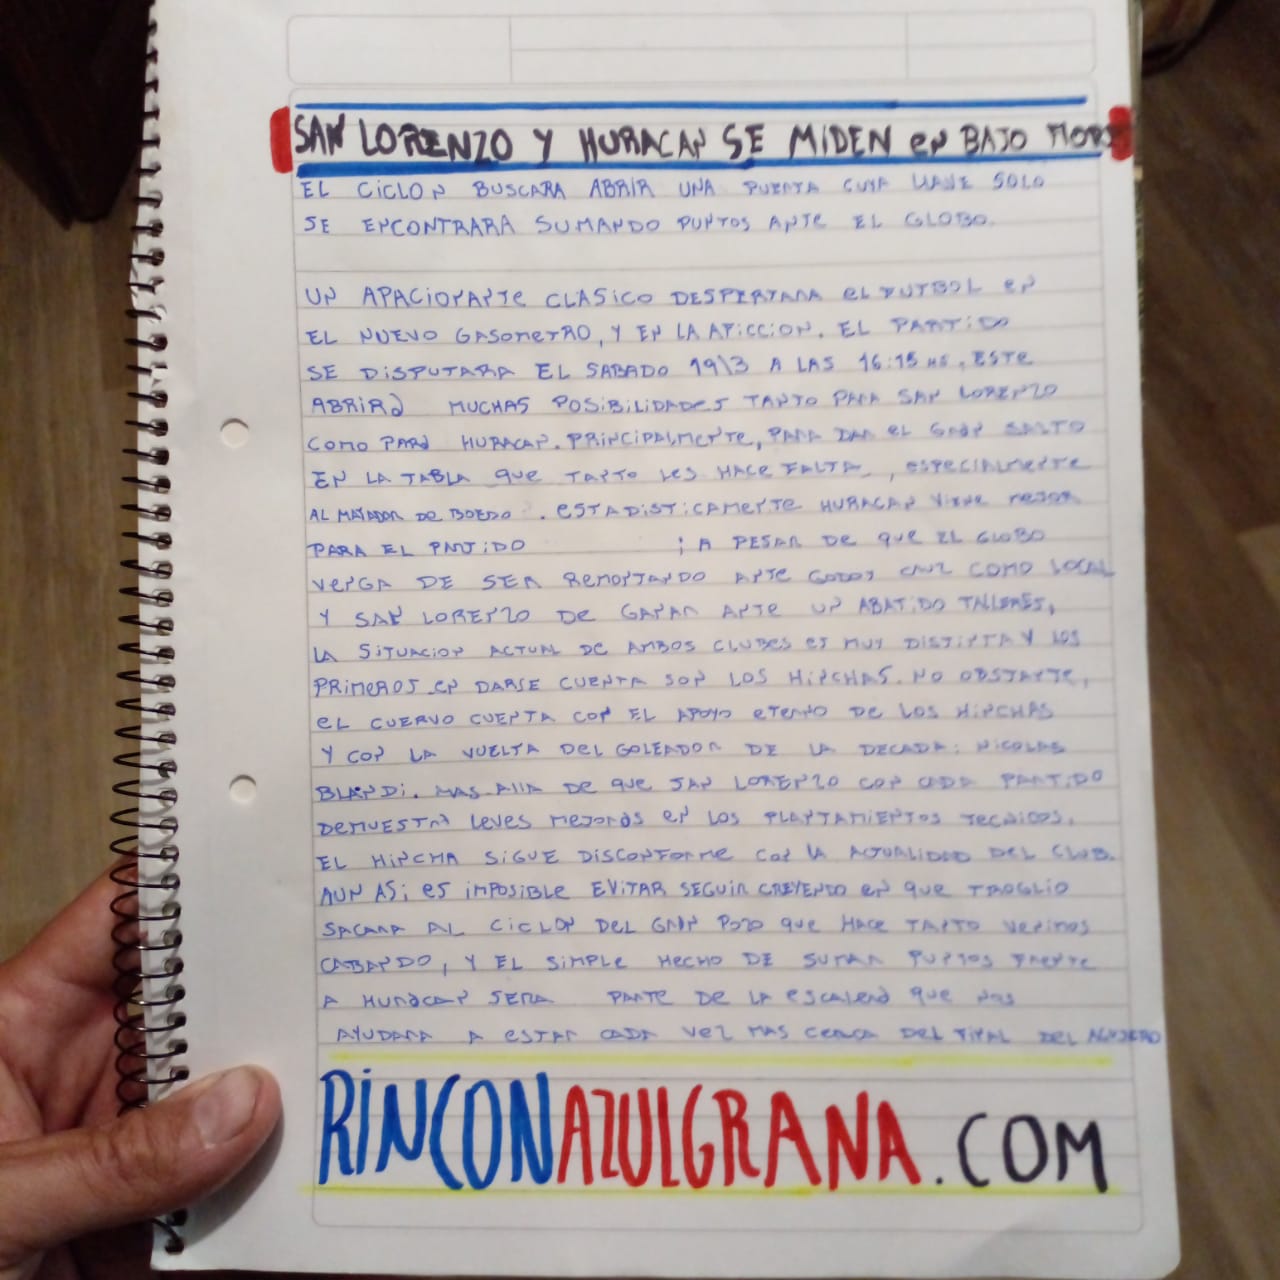 SAN LORENZO Y HURACAN SE MIDEN en BAJO FLORES
EL CICLON BUSCARA ABRIR UNA PUERTA CUYA LLAVE SOLO
SE ENCONTRARA SUMANDO PUNTOS ANTE EL GLOBO.
UN APACIONANTE CLASICO DESPERTARA el FUTBOL en
EL NUEVO GASOMETRO, Y EN LA AFICCION. EL PARTIDO
SE DISPUTARA EL SABADO 19\3 A LAS 16:15 HS, ESTE
ABRIRA MUCHAS POSIBILIDADES TANTO PARA SAN LORENZO
COMO PARA HURACAN. PRINCIPALMENTE, PARA DAR el GRAN SALTO
EN LA TABLA que TANTO LES HACE FALTA, ESPECIALMENTE
AL MATADOR DE BOEDO. ESTADISTICAMENTE HURACAN VIENE MEJOR
PARA EL PARTIDO ; A PESAR DE que EL GLOBO
VENGA DE SER REMONTANDO ANTE GODOY CRUZ COMO LOCAL
Y SAN LORENZO DE GANAR ANTE UN ABATIDO TALLERES,
LA SITUACION ACTUAL DE AMBOS CLUBES es MUY DISTINTA Y LOS
PRIMEROS en DARSE CUENTA SON LOS HINCHAS. NO OBSTANTE,
el CUERVO CUENTA CON EL APOYO eTERNO DE LOS HINCHAS
Y CON LA VUELTA DEL GOLEADOR DE LA DECADA: NICOLAS
BLANDI. MAS ALLA DE que SAN LORENZO CON CADA PARTIDO
DEMUESTRA leves mejoras en LOS PLANTAMIENTOS TECNICOS,
EL HINCHA SIGUE DISCONFORME CON LA ACTUALIDAD DEL CLUB.
AUN ASi es IMPOSIBLE EVITAR SEGUIR CREYENDO en que TROGLIO
SACARA AL CICLON DEL GRAN POZO que HACE TANTO VENIMOS
CABANDO, Y EL SIMPLE HECHO DE SUMAR PUNTOS FRENTE
A HURACAN SERA PARTE DE LA ESCALERA que NOS
AYUDARA A ESTAR CADA VEZ MAS CERCA DEL FINAL DEL AGUJERO
RINCONAZULGRANA.COM